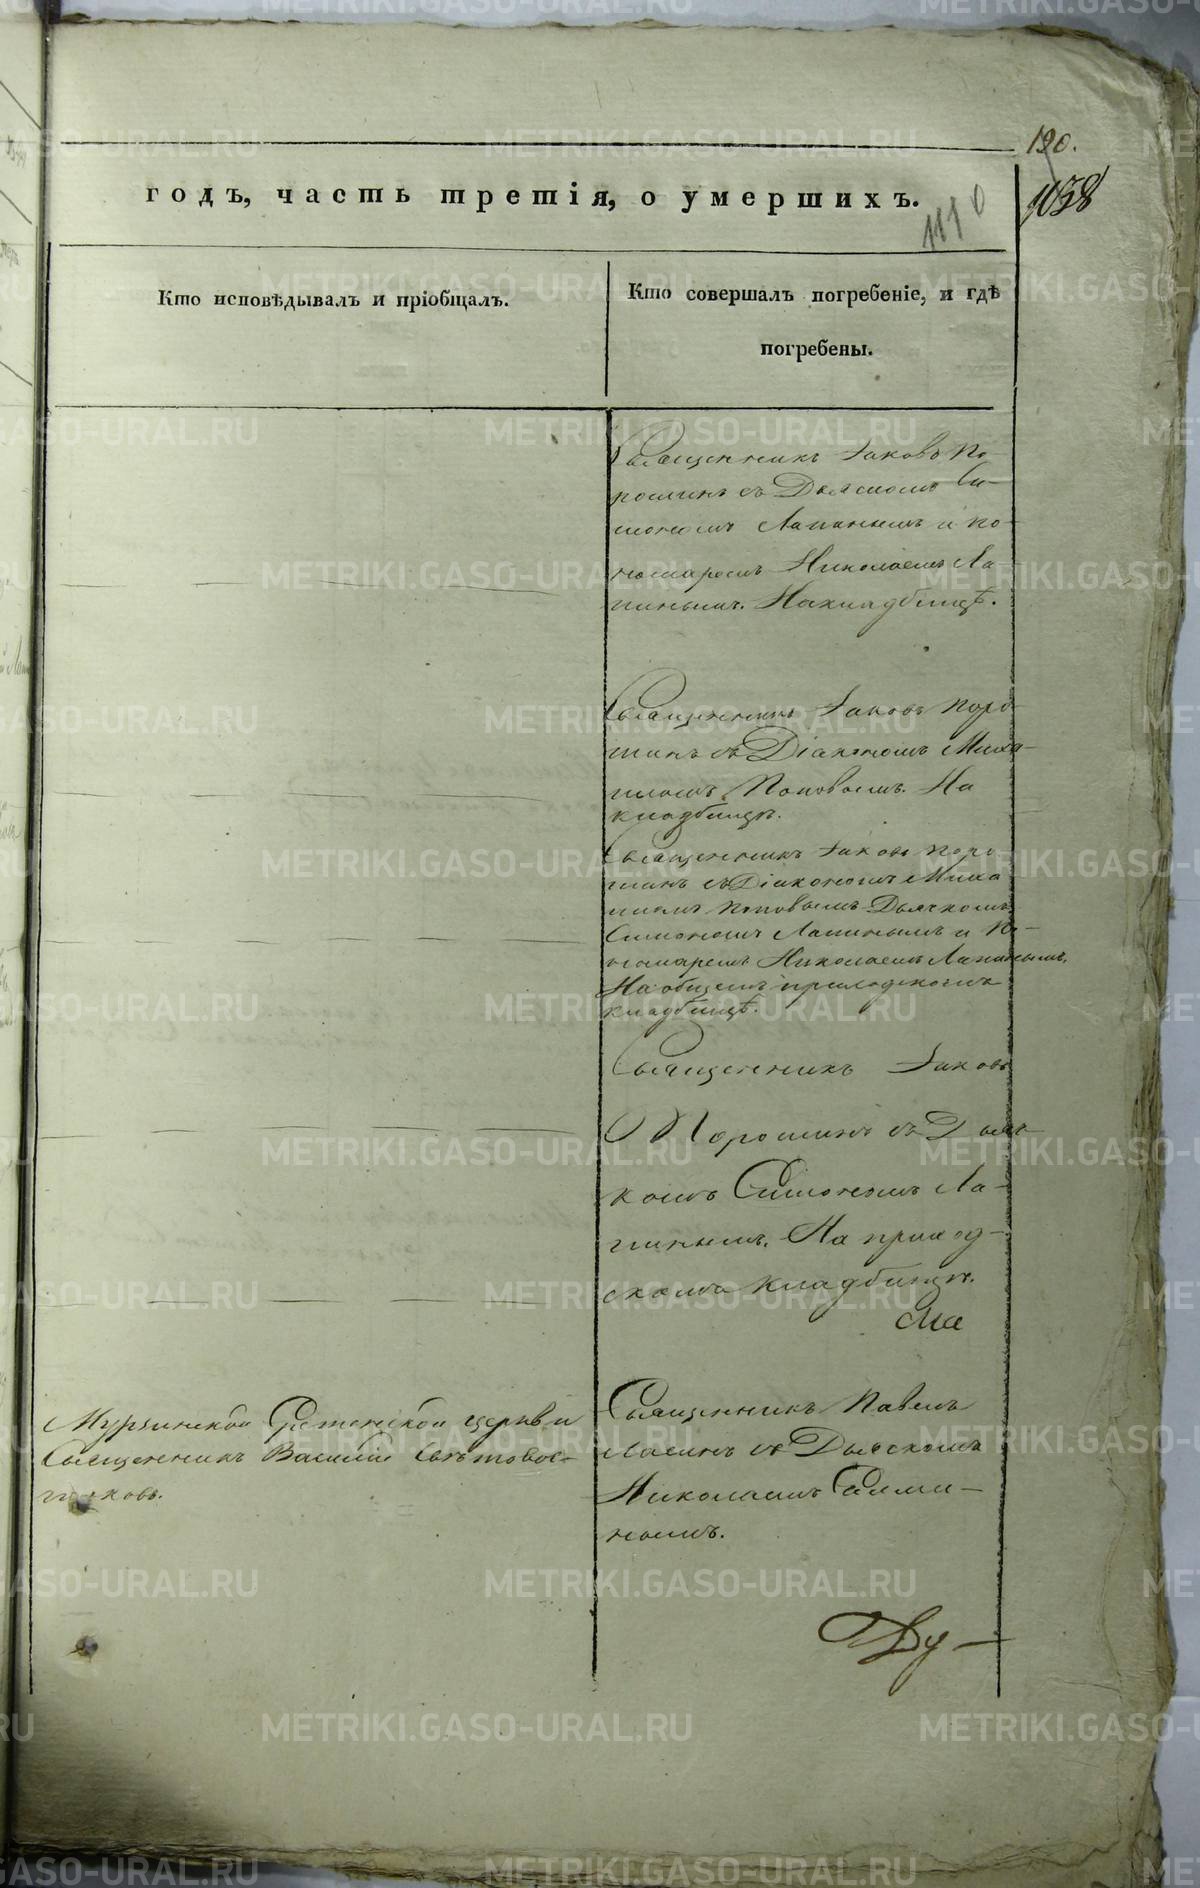 190.
годъ, часть третія, о умершихъ.
1110
1058
Кто исповѣдывалъ и пріобщалъ.
Кто совершалъ погребеніе, и гдѣ
погребены.
Священникъ Іаковъ По-
рошинъ съ Дьячкомъ Си-
мономъ Лапинымъ и по-
номаремъ Николаемъ Ла-
пинымъ. На кладбищѣ.
Священникъ Іаковъ Поро-
шинъ съ Діакономъ Миха-
иломъ Поповымъ. На
кладбищѣ.
Священникъ Іаковъ Поро
шинъ съ Діакономъ Миха
иломъ Поповымъ Дьячкомъ
Симономъ Лапинымъ и По-
номаремъ Николаемъ Лапинымъ.
На общемъ приходскомъ
кладбищѣ.
Священникъ Іаковъ
Порошинъ съ Дьяч-
комъ Симономъ Ла-
пинымъ. На приход-
скомъ кладбищѣ.
Мурзинской Срѣтенской церкви
Священникъ Василій Свѣтовос-
токовъ.
Священникъ Павелъ
съ Дьячкомъ
Николаемъ
номъ.
METRIKI.GASO-URAL.RU